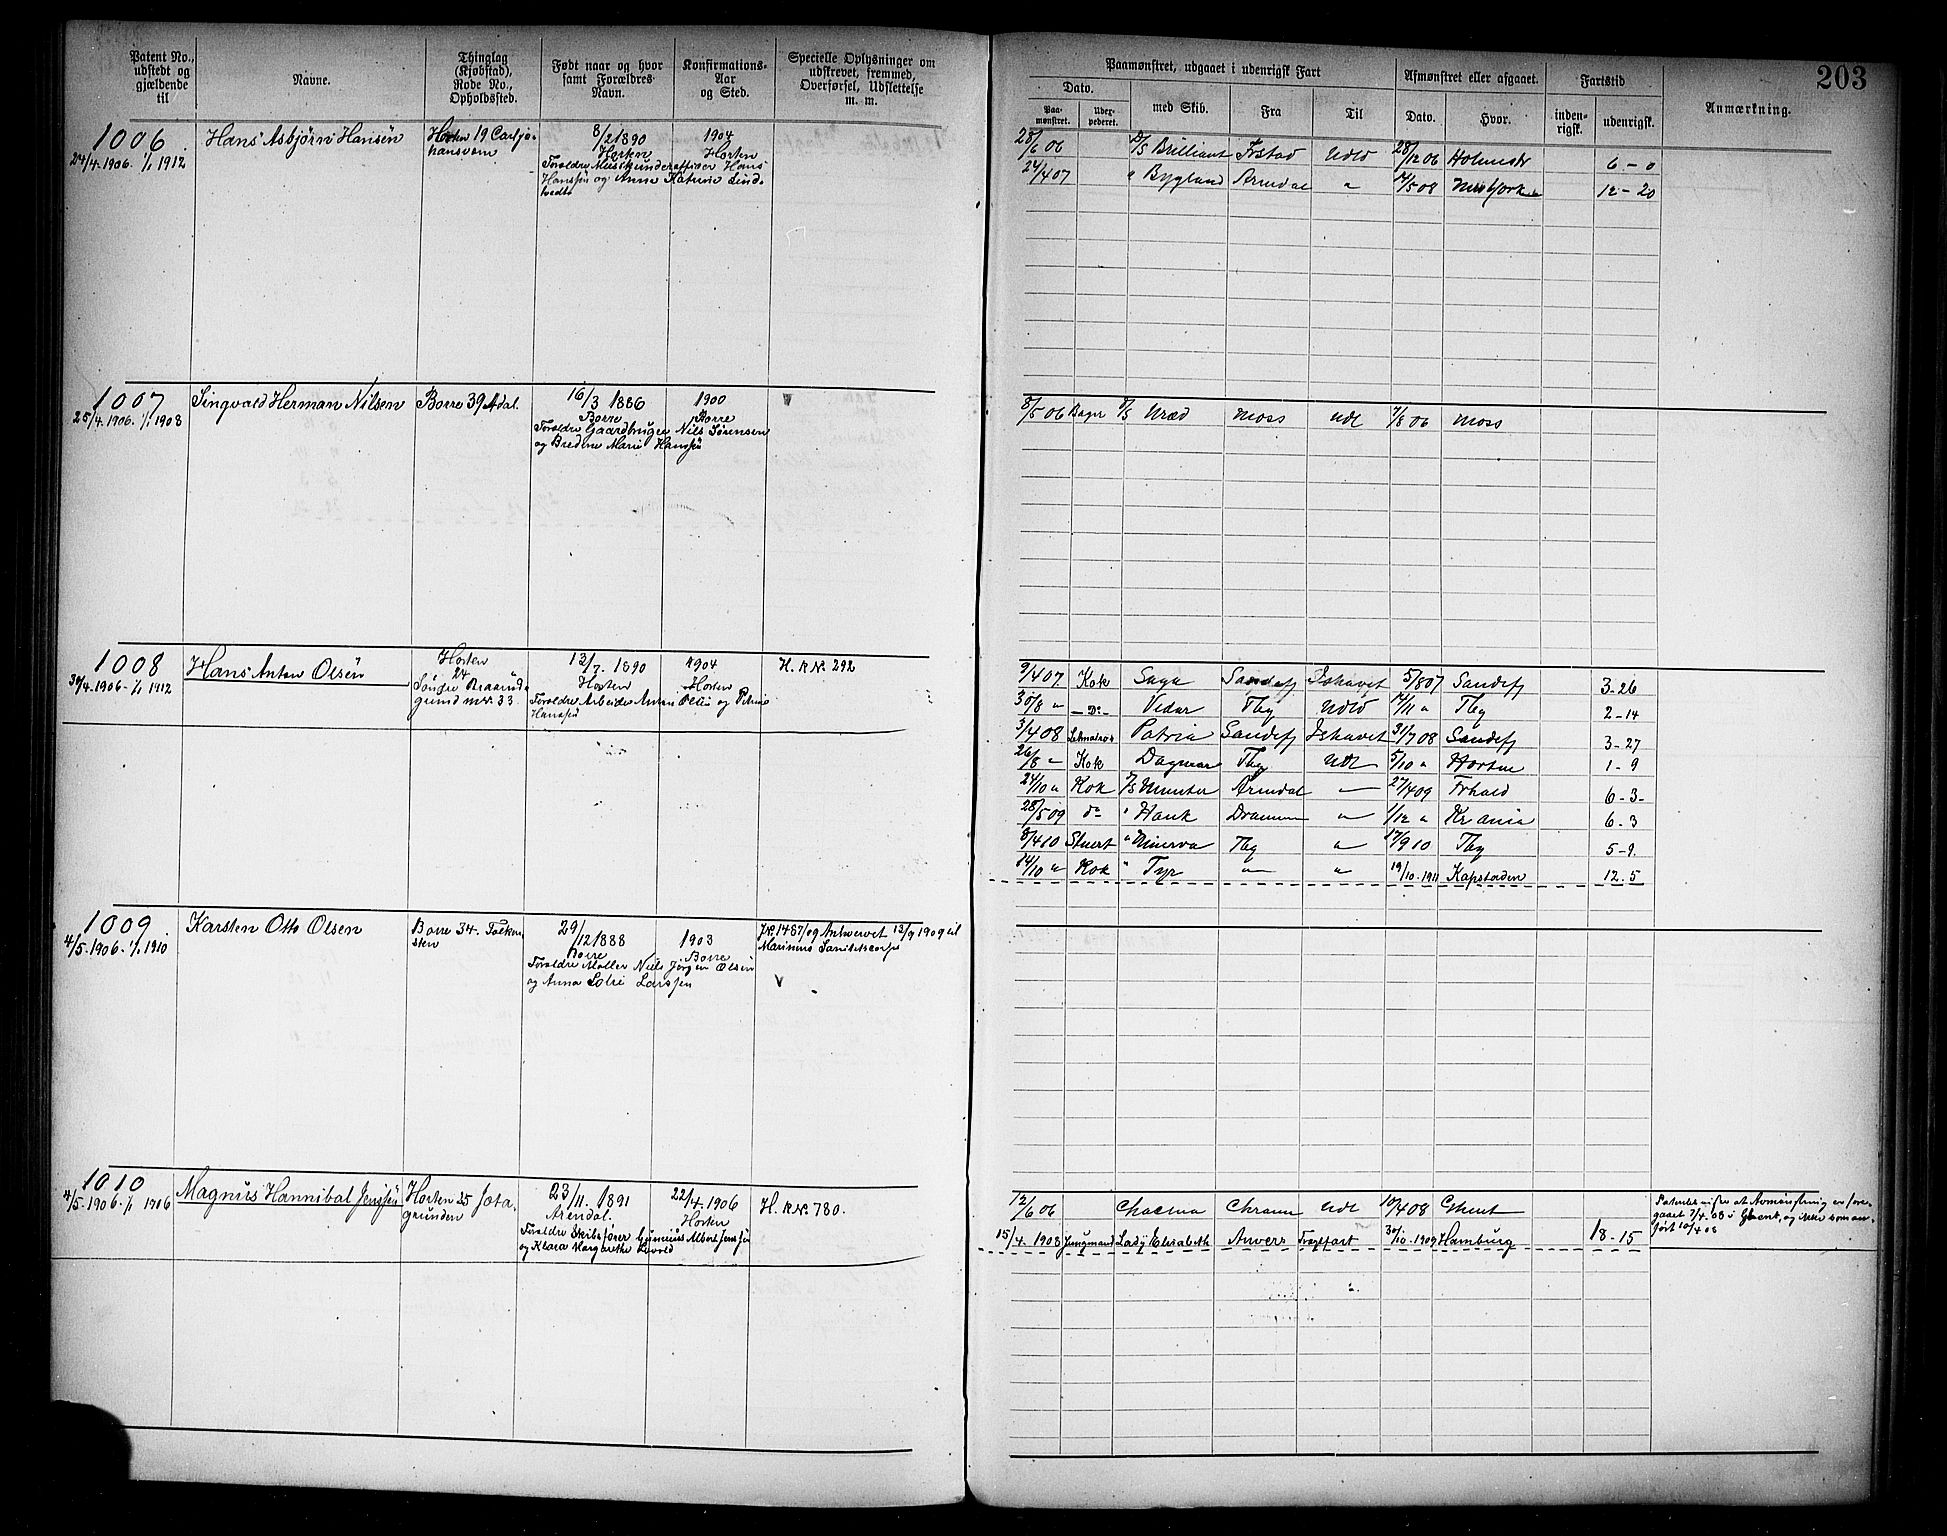 203
Patent No., udstedt og gjældende til
Navne.
Thinglag (Kjøbstad), Rode No., Opholdssted.
Født naar og hvor samt Forældres Navn.
Konfirmations-Aar og Sted.
Specielle Oplysninger om udskrevet, fremmed, Overførsel, Udslettelse m. m.
Paamønstret, udgaaet i udenrigsk Fart
Afmønstret eller afgaaet.
Fartstid
Anmærkning.
Dato.
Paamønstret.
med Skib.
Fra
Til
Dato.
Hvor.
indenrigsk.
udenrigsk.
1006
24/4.1906. 1/1 1912
Hans Asbjørn Hansen
Horten 19 Carljohansvern
8/2 1890
Horten
1904
Horten
Forældre Hans
Hanssen og Anna Katrine Lindtvedt
28/6 06 D/S Brilliant Frstad Udld 28/12 06 Holmestr 6-0
24/4 07 " Bygland Arendal " 14/5 08 New York 12-20
1007
25/4.1906. 1/1 1908
Singvald Herman Nilsen
Borre 39 Adal.
16/3 1886
Borre
1900
Borre
Forældre Gaardbruger Nils Sørensen
og Bredine Marie Hanssen
8/5 06 D/S Uræd Moss Udl 7/8 06 Moss
1008
30/4.1906. 1/1 1912
Hans Anton Olsen
Horten
24
Søndre Braarudgrund nr. 33
13/7. 1890
Horten
1904
Horten
Forældre Arbeider Anton Olsen og Petrine
Hanssen
H. RNo. 292
9/4 07 Kok Saga Sandefj Ishavet 5/8 07 Sandefj 3-26
30/8 " Do Vidar Tbg Udld 14/11 " Tbg 2-14
3/4 08 Letmatros Patria Sandefj Ishavet 31/7 08 Sandefj 3-27
26/8 " Kok Dagmar Tbg Udl 5/10 " Horten 1-9
24/10 " Kok D/S Munster Arendal " 27/4 09 Frhald 6-3-
28/5 09 do " Hauk Drammen " 1/12 " Kr ania 6-3
8/4 10 Stuert " Minerva Tbg " 17/9 10 Tbg 5-9.
14/10 " Kok " Tyr " " 19/10.1911 Kapstaden 12.5
1009
4/5.1906. 1/1 1910
Karsten Otto Olsen
Borre 34. Falkensten
29/12 1888
Borre
1903
Borre
Forældre Møller Niels Jørgen Olsen
og Anna Sofie Larssen
J.No. 1487/09 Antvervet 13/9 1909 til
Marinens Sanitetscorps
1010
4/5.1906. 1/1 1906
Magnus Hannibal Jenssen
Horten 25 Jøtagrunden
23/11. 1891
Arendal.
22/4. 1906
Horten
Forældre Skibsfører Gunnius Albert Jenssen
og Klara Margarethe Lovold
H. RNo. 780.
12/6 06 Chacma Chrania Udl 10/4 08 Ghent
15/4. 1908 Jungmand Lady Elisabeth Anvers Fragtfart 30/10.1909 Hamburg 18-15
Patentet viser at Avmønstring er foregaaet 7/4.08 i Ghent, og ikke som anført 10/4 08